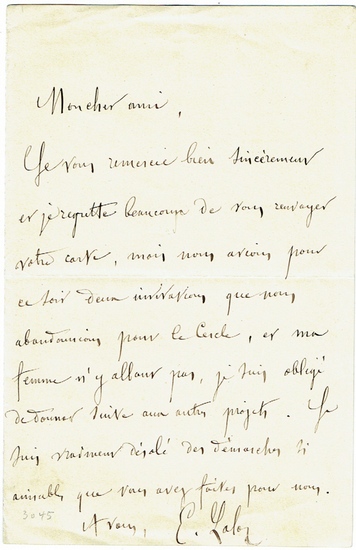 Mon cher ami,
Je vous remercie bien sincèrement
et je regrette beaucoup de vous renvoyer
votre carte, mais nous avions pour
ce soir deux invitations que nous
abandonnions pour le Cercle, et ma
femme n'y allant pas, je suis obligé
de donner suite aux autres projets. Je
suis vraiment désolé des démarches si
aimables que vous avez faites pour nous.
A vous, E. Lalo
3045